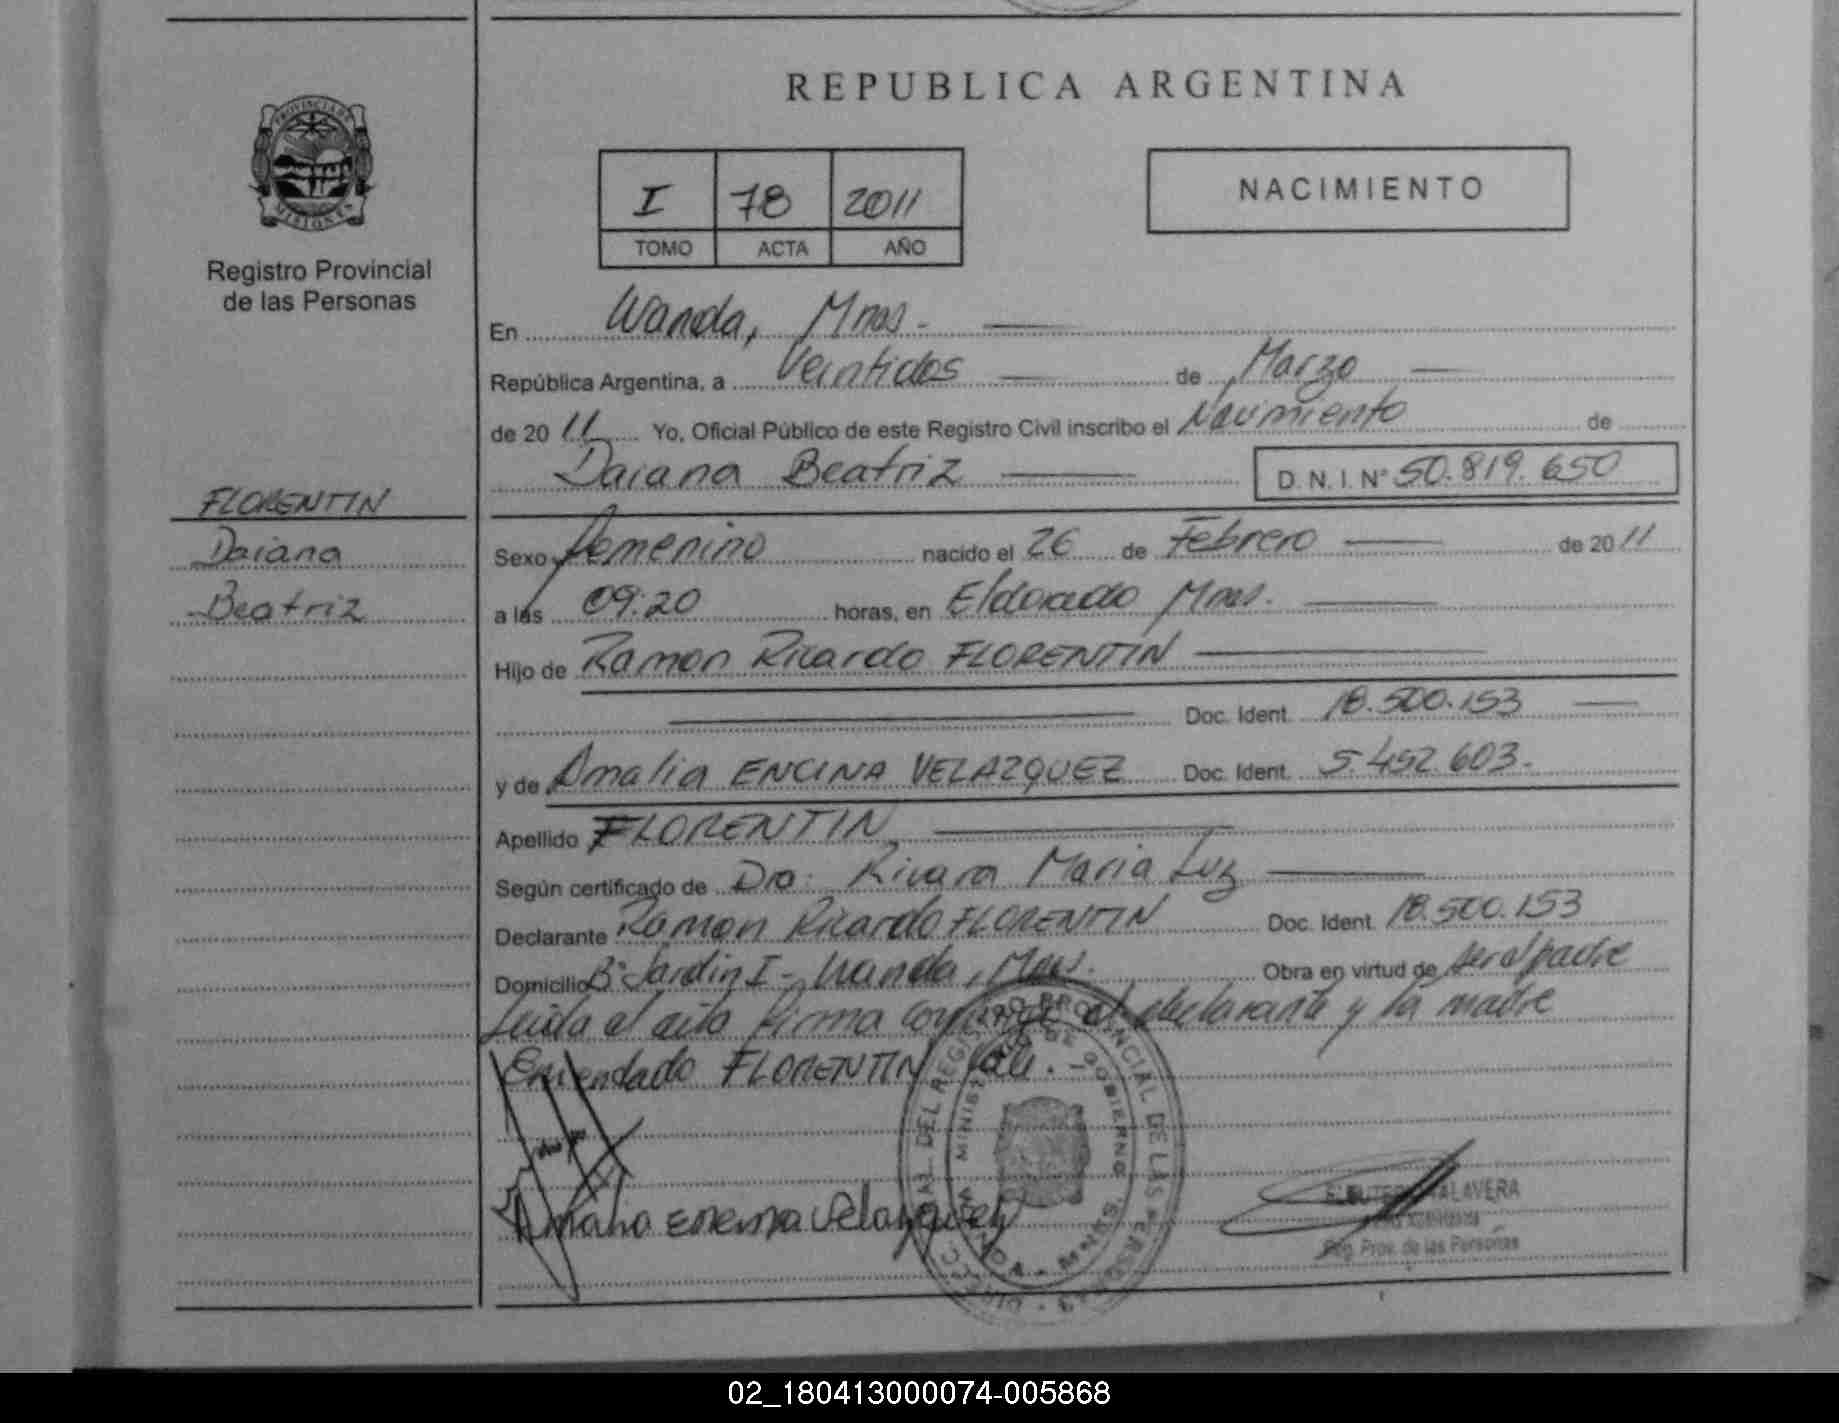 REPUBLICA ARGENTINA
PROVINCIA DE
MISIONES
Registro Provincial
de las Personas
I 78 2011
TOMO ACTA AÑO
NACIMIENTO
En Wanda, Mnes.
República Argentina, a Veintidos de Marzo
de 2011 Yo, Oficial Público de este Registro Civil inscribo el Nacimiento de
Daiana Beatriz D.N.I. Nº 50.819.650
FLORENTIN
Daiana
Beatriz
Sexo femenino nacido el 26 de Febrero de 2011
a las 09:20 horas, en Eldorado Mnes.
Hijo de Ramon Ricardo FLORENTIN
Doc. Ident. 18.500.153
y de Amalia ENCINA VELAZQUEZ Doc. Ident. 5.452.603.
Apellido FLORENTIN
Según certificado de Dra. Rivara Maria Luz
Declarante Ramon Ricardo FLORENTIN Doc. Ident. 18.500.153
Domicilio Bº Jardin I - Wanda, Mnes. Obra en virtud de ser el padre
Leida el acta firma conmigo el declarante y la madre
Enmendado FLORENTIN Vale. -
Amalia Encina Velazquez
DEL REGISTRO PROVINCIAL DE LAS PERSONAS
GOBIERNO
WANDA - MNES.
TALAVERA
Reg. Prov. de las Personas
02_180413000074-005868